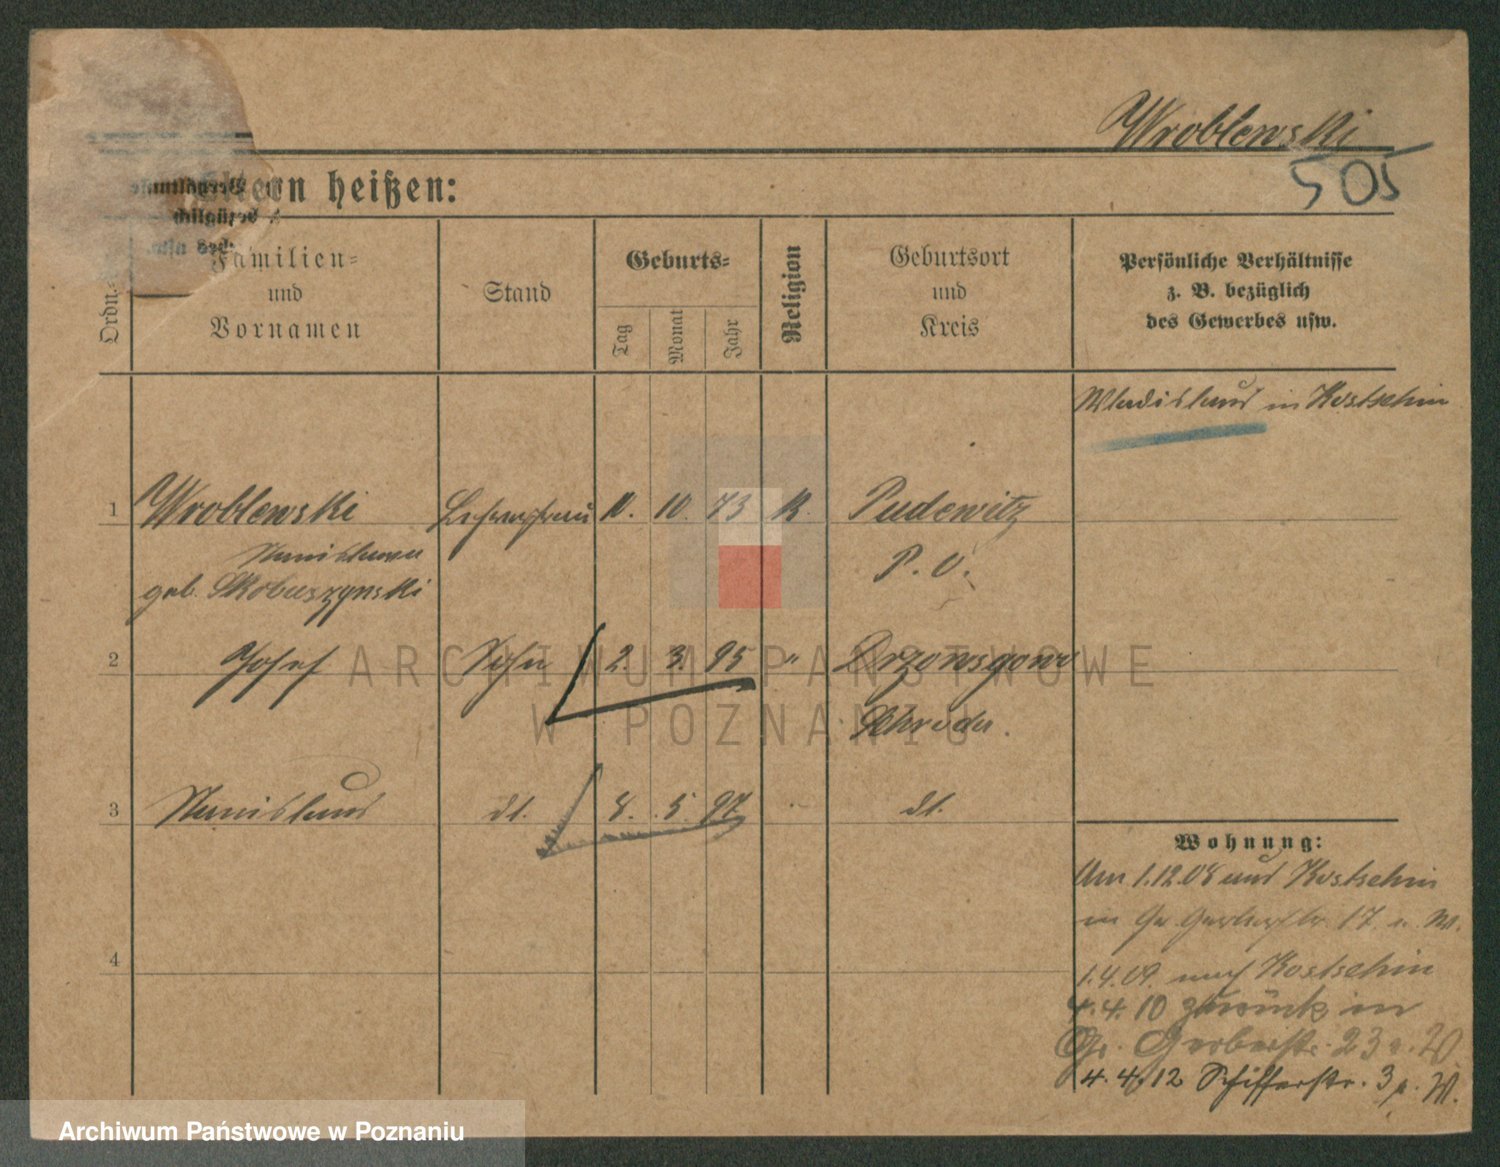 Wroblewski
505
Eltern heißen:
Ordn.
Familien=
und
Vornamen
Stand
Geburts=
Tag
Monat
Jahr
Religion
Geburtsort
und
Kreis
Persönliche Verhältnisse
z. B. bezüglich
des Gewerbes usw.
Wladislaus in Kostschin
1 Wroblewski 10. 10. 73 K. Pudewitz
Stanislawa P. O.
geb. Skobuszynski
2 Josef Sohn 2. 3. 95 "
Schroda.
3 Stanislaus dt. 8. 5. 97 " dt.
4
Wohnung:
Am 1.12.08 aus Kostschin
in Gr. Gerberstr. 17. a. W.
1.4.09. nach Kostschin
4.4.10 zurück in
Gr. Gerberstr. 23 a. W.
4.4.12 Schifferstr. 3 a. W.
ARCHIWUM PAŃSTWOWE
W POZNANIU
Archiwum Państwowe w Poznaniu